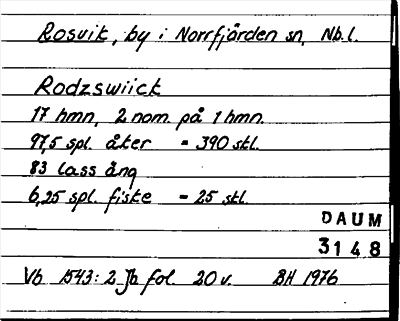 Rosvik, by i Norrfjärden sn, Nb.l.
Rodzswiick
17 hmn, 2 nom. på 1 hmn.
97,5 spl. åker = 390 skl.
83 lass äng
6,25 spl. fiske = 25 skl.
DAUM
3148
Vb 1543:2 Jb fol. 20 v. BH 1976